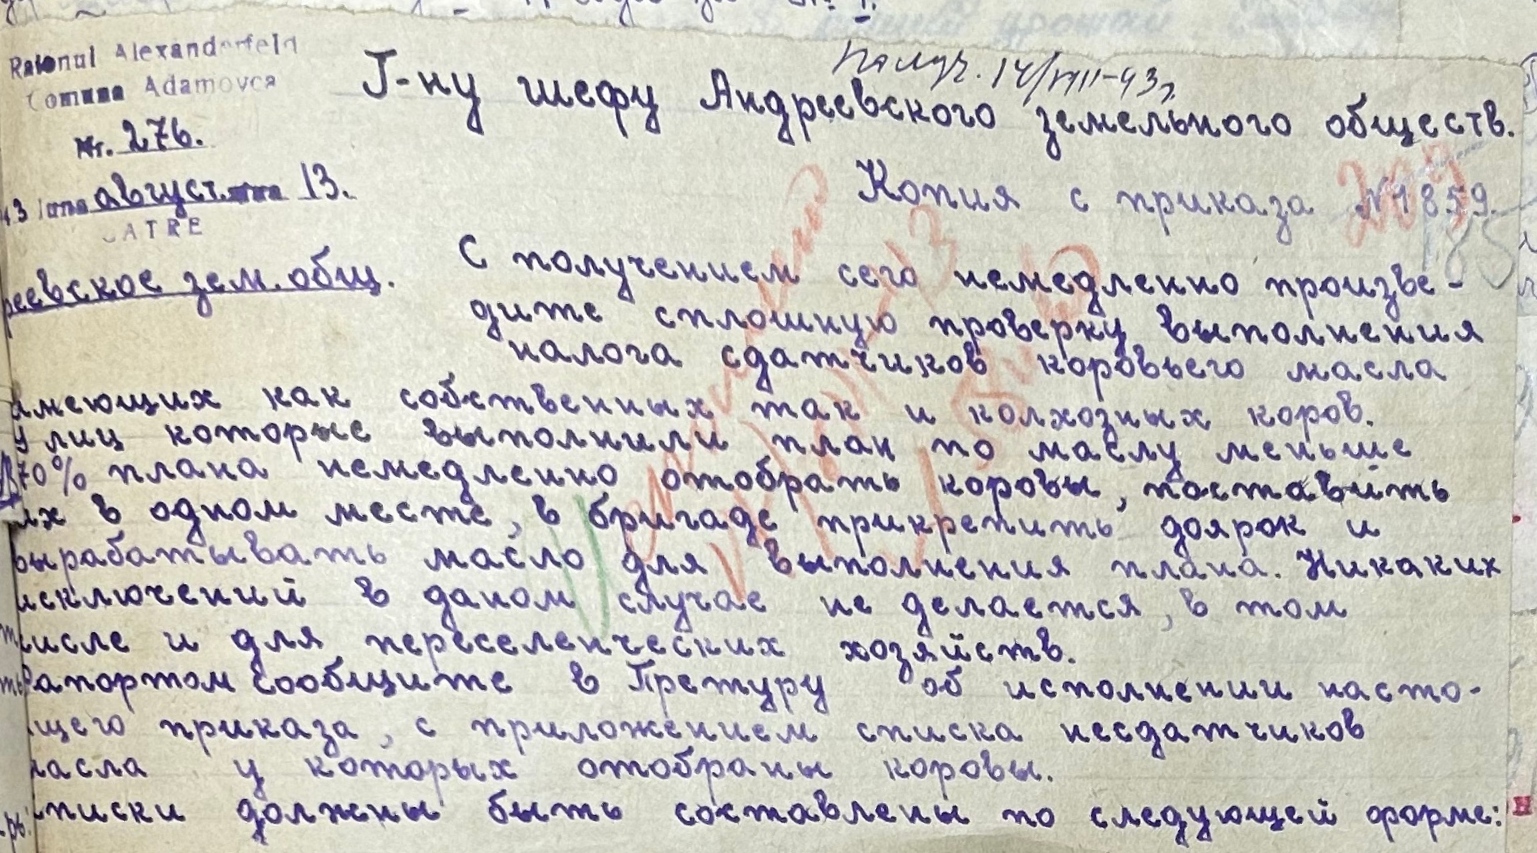 Raionul Alexanderfeld
Comuna Adamovca
Nr. 276.
август 13.
CATRE
реевское зем. общ.
Получ. 14/VIII-43 г.
Г-ну шефу Андреевского земельного обществ.
Копия с приказа №1859.
С получением сего немедленно произве-
дите сплошную проверку выполнения
налога сдатчиков коровьего масла
имеющих как собственных так и колхозных коров.
У лиц которые выполнили план по маслу меньше
70% плана немедленно отобрать коровы, поставить
их в одном месте, в бригаде прикрепить доярок и
вырабатывать масло для выполнения плана. Никаких
исключений в даном случае не делается, в том
числе и для переселенческих хозяйств.
Рапортом сообщите в Претуру об исполнении насто-
щего приказа, с приложением списка несдатчиков
масла у которых отобраны коровы.
списки должны быть составлены по следующей форме: